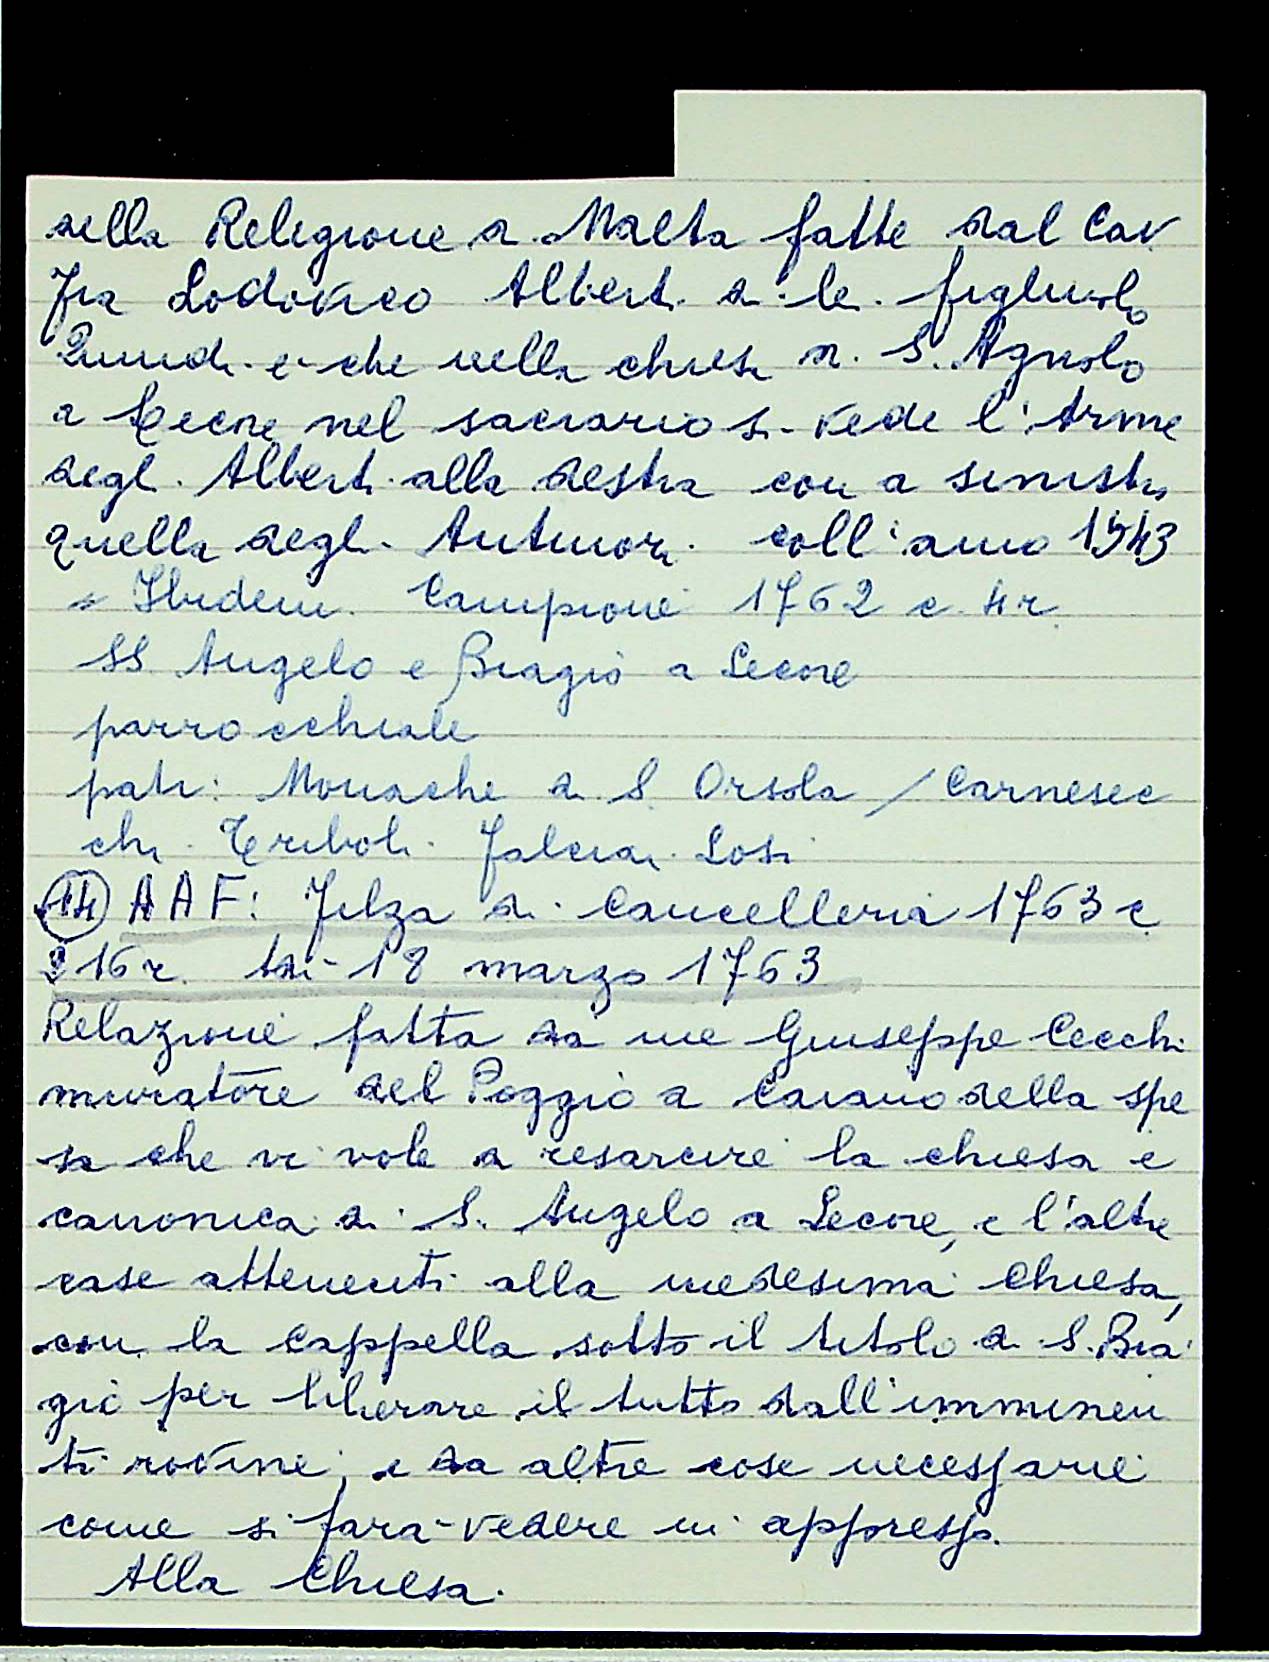 della Religione di Malta fatte dal Cav
Fra Lodovico Alberti di le figliuolo
Quindi e che nella chiesa di S. Agnolo
a Lecore nel sacrario si vede l'Arme
degli Alberti alla destra con a sinistra
quella degli Antinori coll'anno 1543
Ibidem. Campione 1762 c 4r
SS Angelo e Biagio a Lecore
parrocchiale
patr: Monache di S. Orsola / Carnesec
chi Triboli Falciai Losi
(14) AAF: Filza di Cancelleria 1763 c
216r. 18 marzo 1763
Relazione fatta da me Giuseppe Cecchi
muratore del Poggio a Caiano della spe
sa che vi vole a resarcire la chiesa e
canonica di S. Angelo a Lecore, e l'altre
case attenenti alla medesima chiesa,
con la cappella sotto il titolo di S. Bia
gio per liberare il tutto dall'imminen
ti rovine, e da altre cose necessarie
come si fara vedere in appresso.
Alla Chiesa.